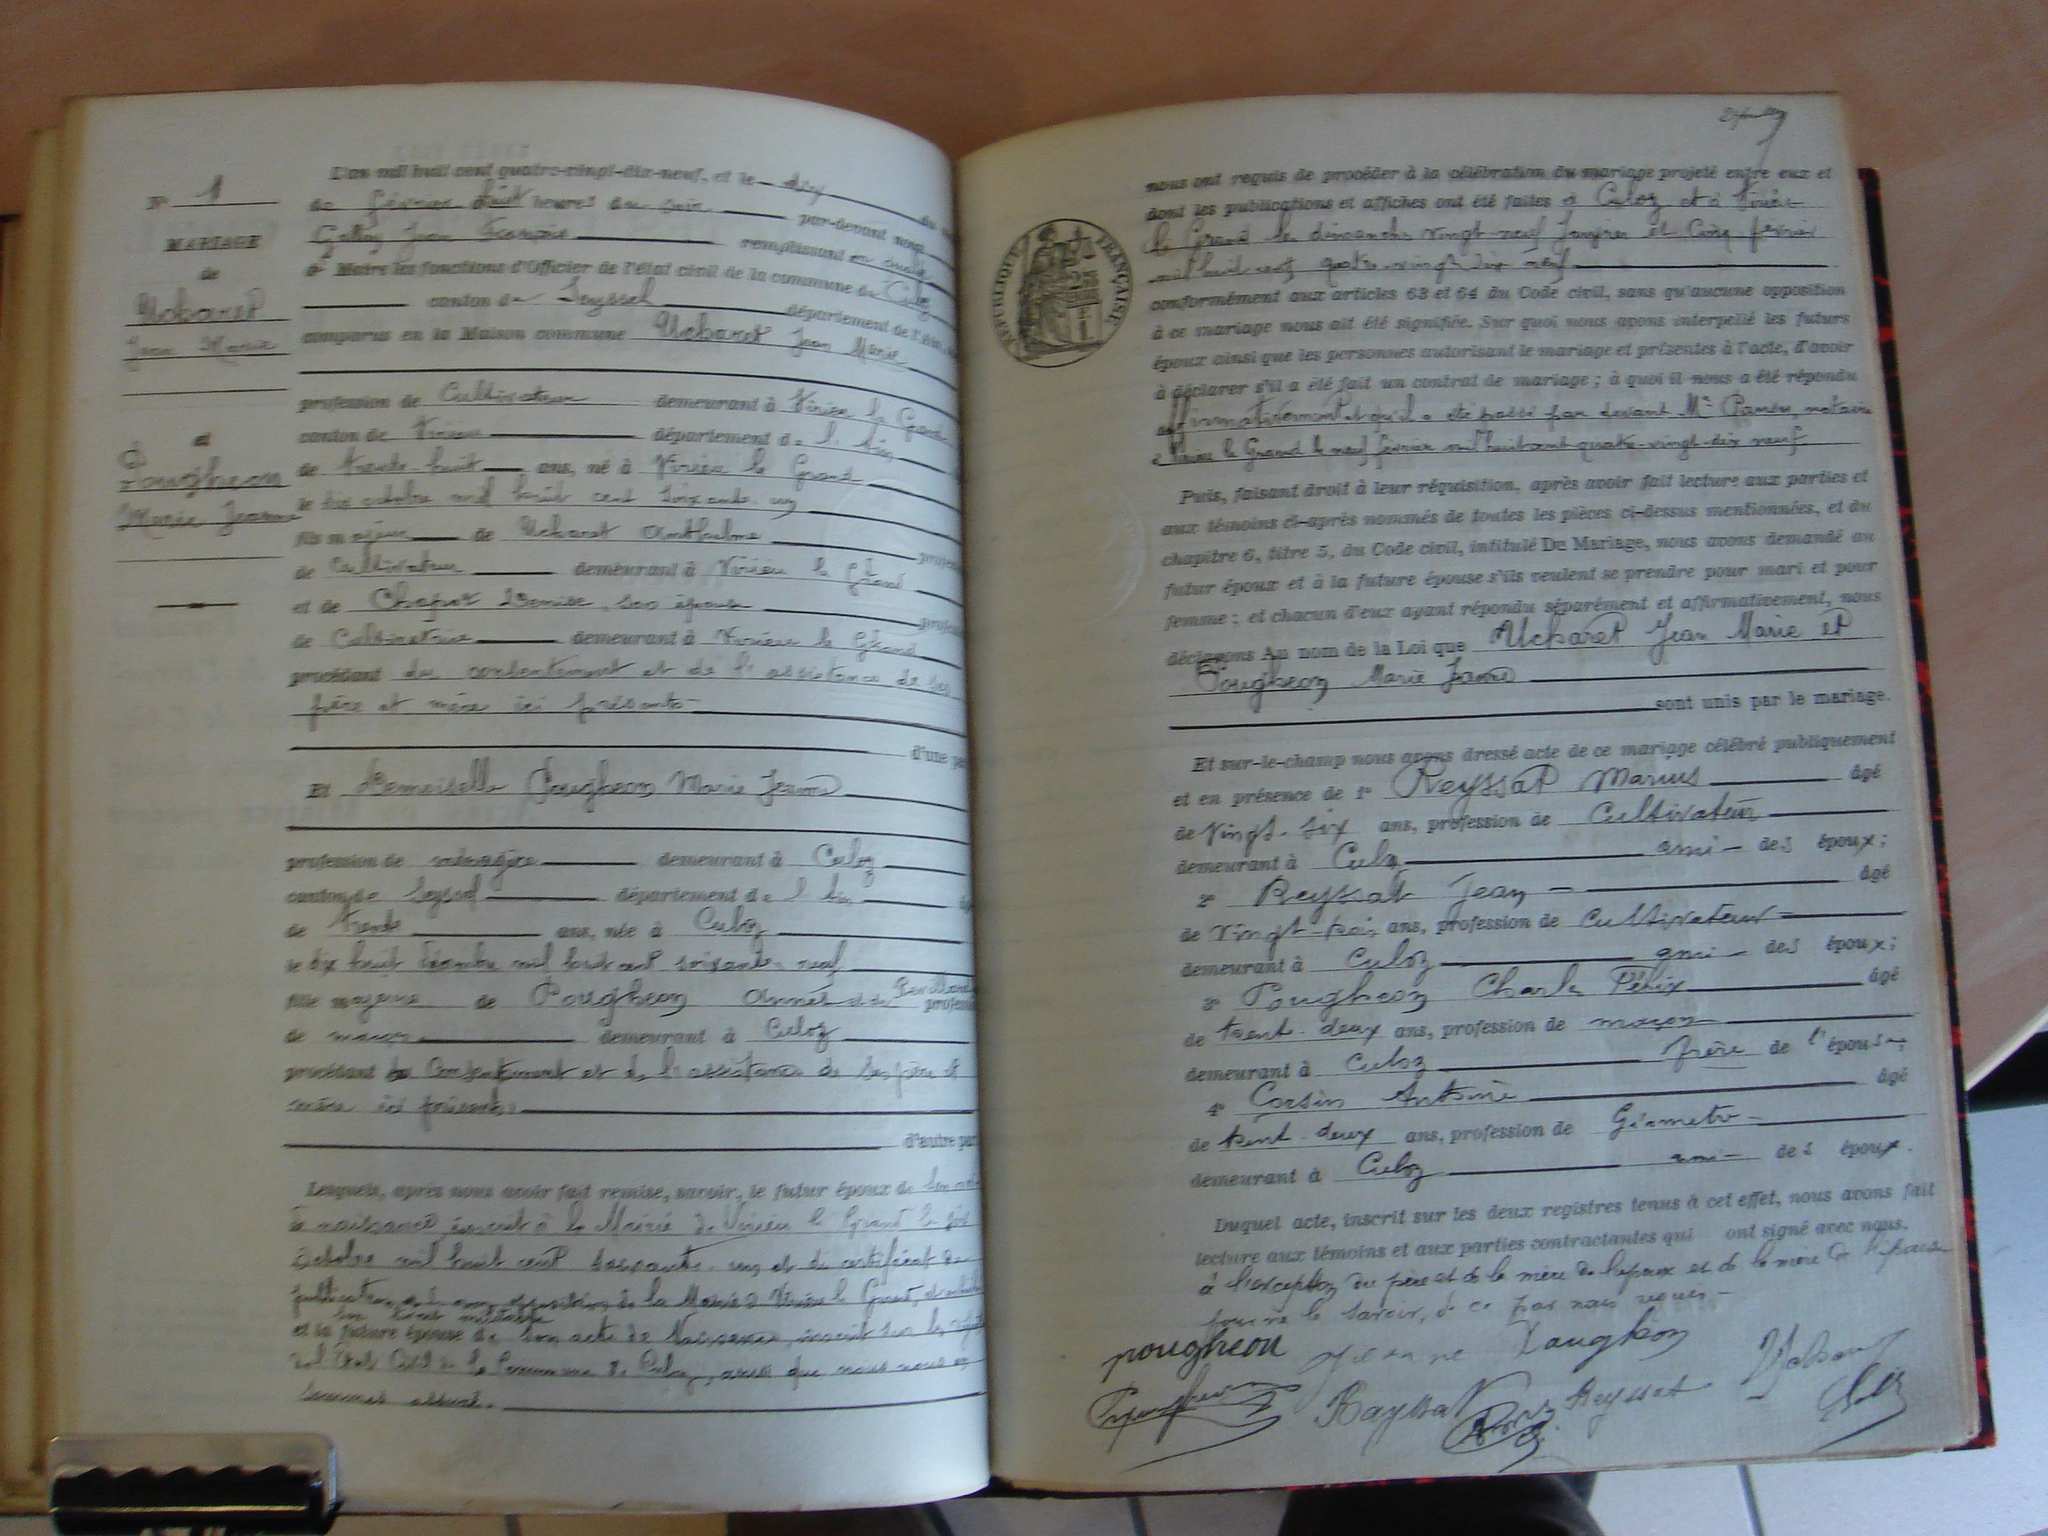 N° 1
MARIAGE
de
Ucharet
Jean Marie
et
Pougheon
Marie Jeanne
L'an mil huit cent quatre-vingt-dix-neuf, et le dix du
de Février huit heures du soir par-devant nous
Jean François remplissant
Maire les fonctions d'Officier de l'état civil de la commune de Culoz
canton de Seyssel département de l'Ain,
comparus en la Maison commune Ucharet Jean Marie
profession de Cultivateur demeurant à Virieu le Grand
canton de Virieu département de l'Ain
de trente-huit ans, né à Virieu le Grand
le dix octobre mil huit cent soixante-un
fils majeur de Ucharet Anthelme
de Cultivateur demeurant à Virieu le Grand
et de Denise, son épouse
de Cultivatrice demeurant à Virieu le Grand
procédant du consentement et de l'assistance de ses
père et mère ici présents
d'une pa
Et Demoiselle Pougheon Marie Jeanne
profession de ménagère demeurant à Culoz
canton de Seyssel département de l'Ain
de trente ans, née à Culoz
le dix huit décembre mil huit cent soixante-neuf
fille majeure de Pougheon et de profess
de maçon demeurant à Culoz
procédant du Consentement et de l'assistance de ses père et
mère ici présents
d'autre par
Lesquels, après nous avoir fait remise, savoir, le futur époux de son
de naissance inscrit à la Mairie de Virieu le Grand le dix
Octobre mil huit cent soixante-un et du certificat de
publication et de non opposition de la Mairie de Virieu le Grand,
et la future épouse de son acte de Naissance, inscrit sur les
de l'Etat Civil de la Commune de Culoz, ainsi que nous nous en
sommes assuré.
nous ont requis de procéder à la célébration du mariage projeté entre eux et
dont les publications et affiches ont été faites à Culoz et à Virieu
le Grand les dimanches vingt-neuf Janvier et Cinq février
mil huit cent quatre-vingt dix neuf
REPUBLIQUE FRANÇAISE
conformément aux articles 63 et 64 du Code civil, sans qu'aucune opposition
à ce mariage nous ait été signifiée. Sur quoi nous avons interpellé les futurs
époux ainsi que les personnes autorisant le mariage et présentes à l'acte, d'avoir
à déclarer s'il a été fait un contrat de mariage ; à quoi il nous a été répondu
affirmativement et qu'il a été passé par devant Me notaire
à Virieu le Grand le neuf février mil huit cent quatre-vingt-dix neuf
Puis, faisant droit à leur réquisition, après avoir fait lecture aux parties et
aux témoins ci-après nommés de toutes les pièces ci-dessus mentionnées, et du
chapitre 6, titre 5, du Code civil, intitulé Du Mariage, nous avons demandé au
futur époux et à la future épouse s'ils veulent se prendre pour mari et pour
femme ; et chacun d'eux ayant répondu séparément et affirmativement, nous
déclarons Au nom de la Loi que Ucharet Jean Marie et
Pougheon Marie Jeanne
sont unis par le mariage.
Et sur-le-champ nous avons dressé acte de ce mariage célébré publiquement
et en présence de 1° Reyssat Marius âgé
de Vingt-six ans, profession de Cultivateur
demeurant à Culoz ami des époux ;
2° Reyssat Jean âgé
de Vingt-trois ans, profession de Cultivateur
demeurant à Culoz ami des époux ;
3° Pougheon Charle Félix âgé
de trent-deux ans, profession de maçon
demeurant à Culoz frère de l'épouse,
4° Corsin Antoine âgé
de trent-deux ans, profession de Géometre
demeurant à Culoz ami des époux.
Duquel acte, inscrit sur les deux registres tenus à cet effet, nous avons fait
lecture aux témoins et aux parties contractantes qui ont signé avec nous.
à l'exception du père et de la mère de l'époux et de la mère de l'épouse
pour ne le savoir, de ce par nous requis
pougheon Pougheon
Reyssat Reyssat